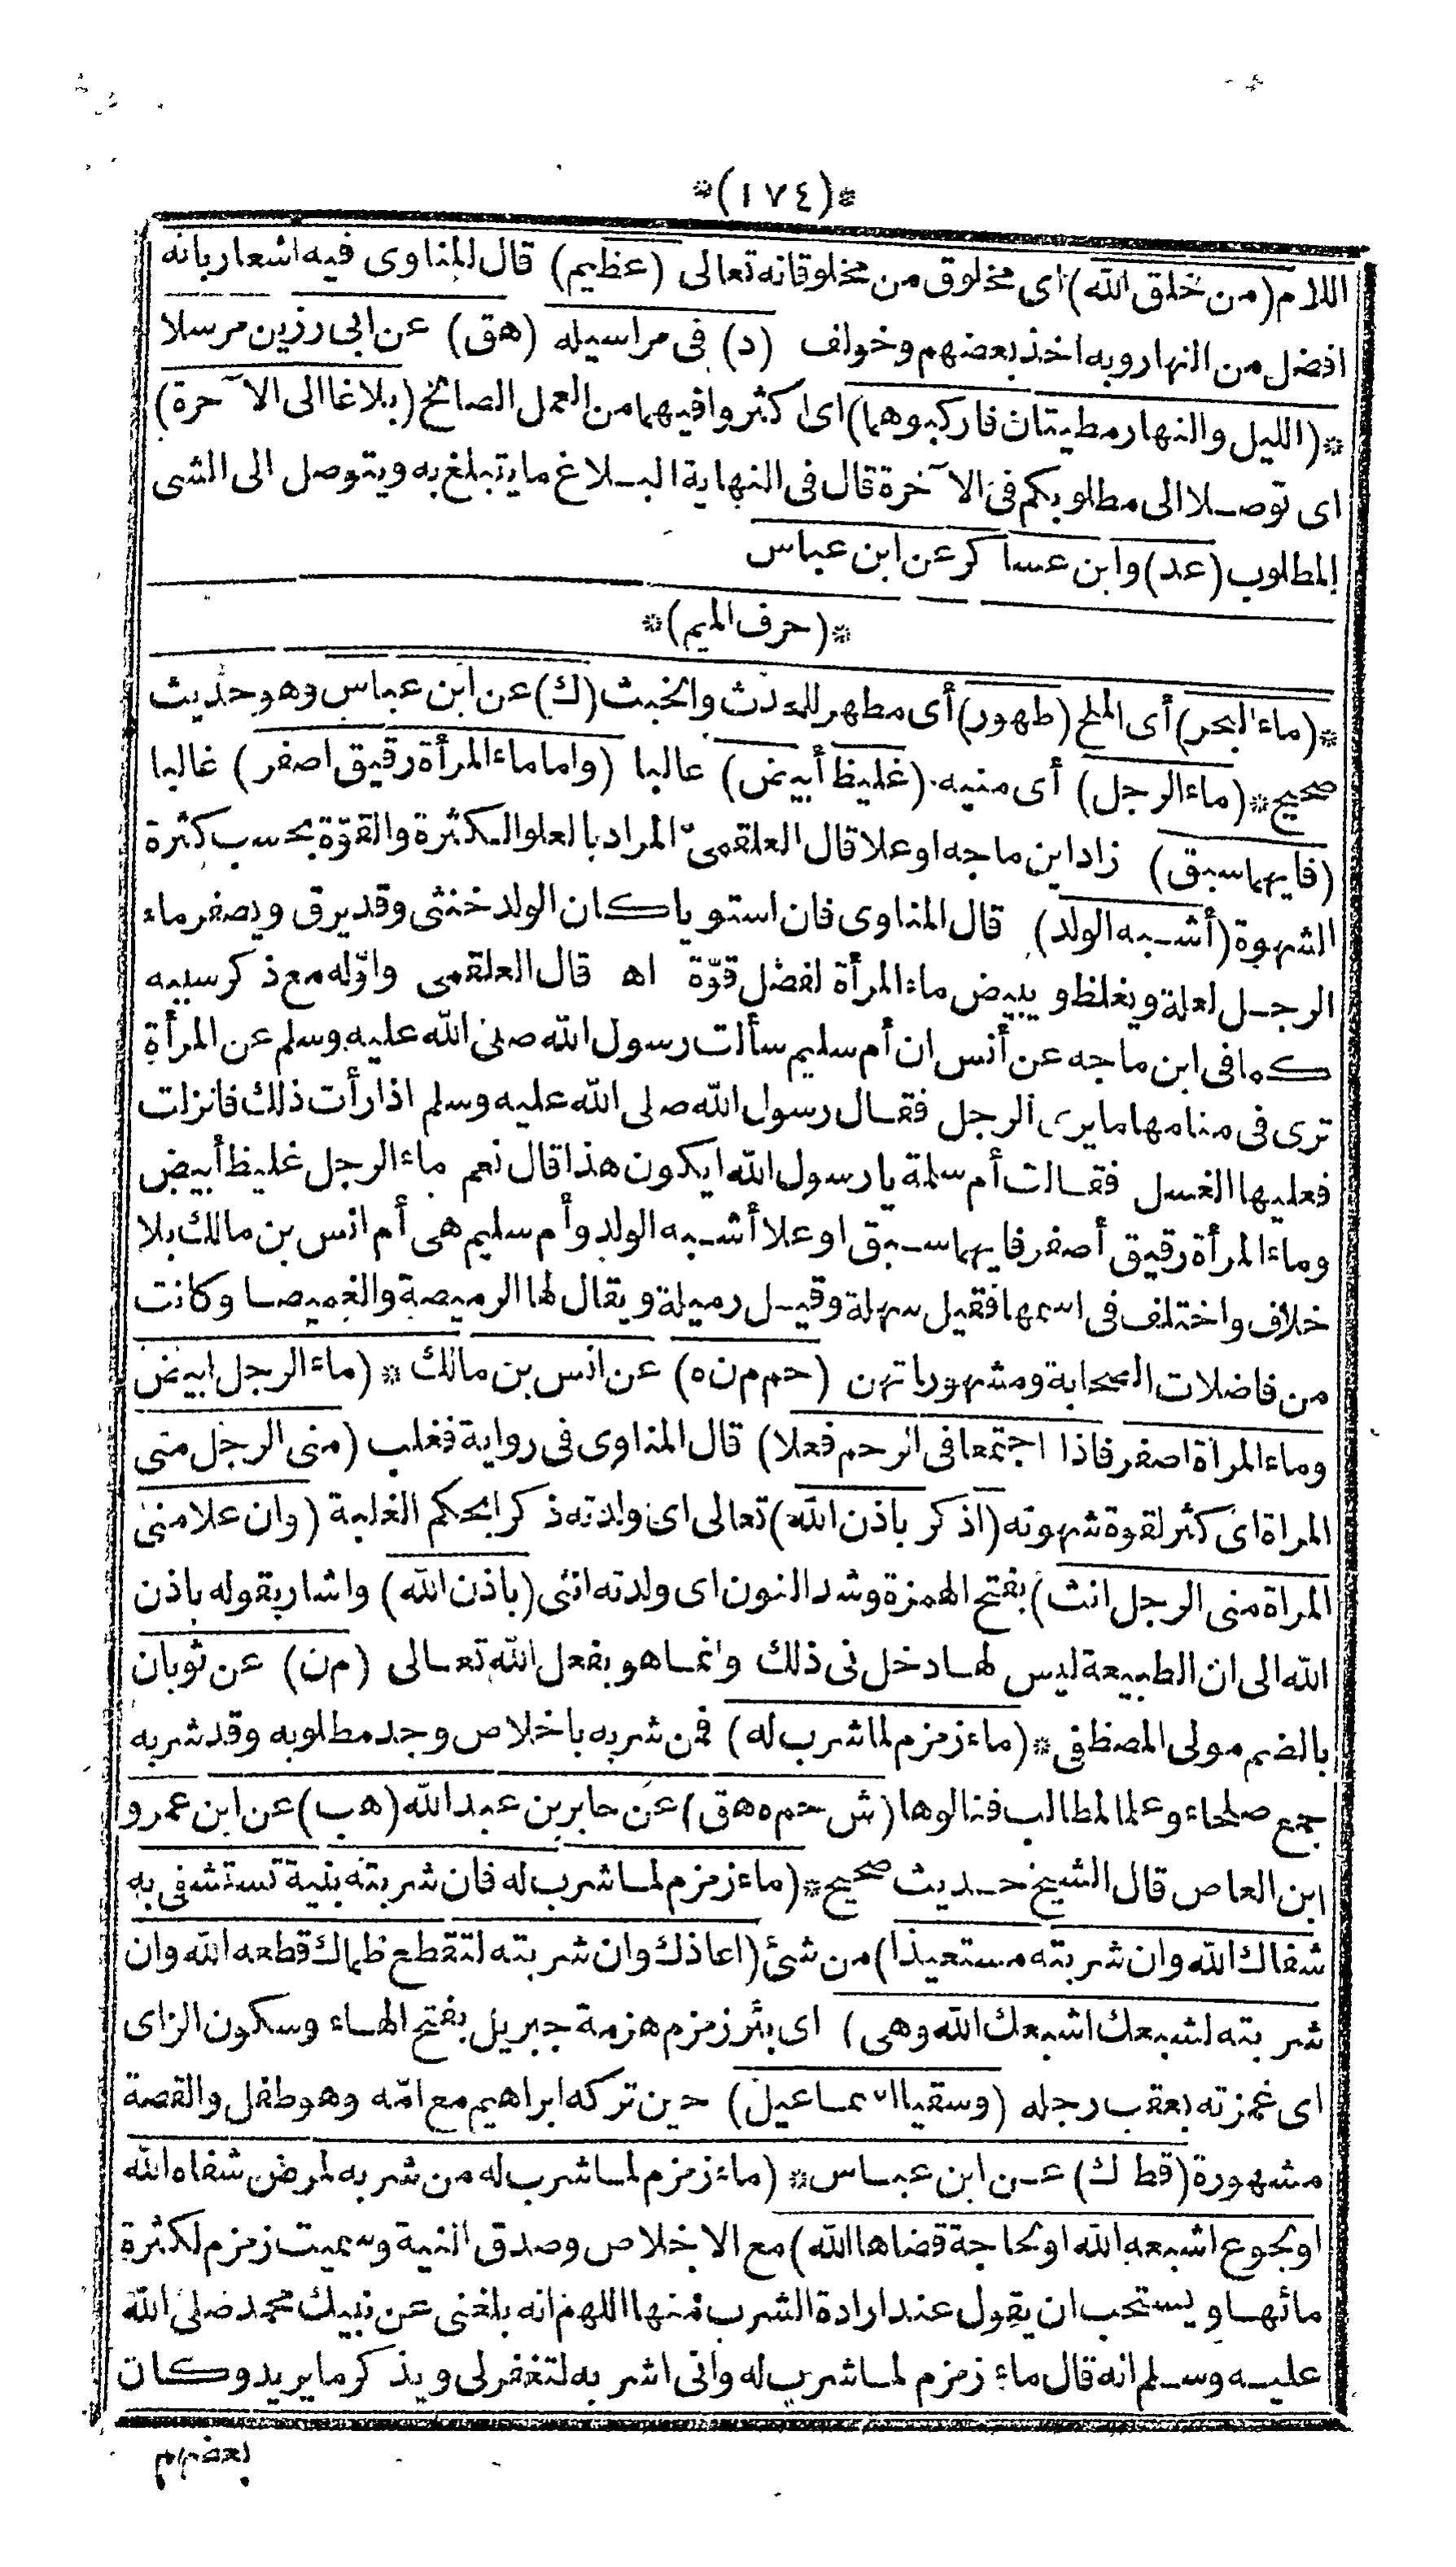 *(١٧٤)*
اللام (من خلق الله) اى مخلوق من مخلوقاته تعالى (عظيم) قال المناوى فيه اشعار بانه
افضل من النهار وبه اخذ بعضهم وخولف (د) فى مراسيله (هق) عن ابى رزين مرسلا
*(الليل والنهار مطيتان فاركبوهما) اى اكثروا فيهما من العمل الصالح (بلاغا الى الآخرة)
اى توصلا الى مطلوبكم فى الآخرة قال فى النهاية البلاغ ما يتبلغ به ويتوصل الى الشى
المطلوب (عد) وابن عساكر عن ابن عباس
*(حرف الميم)*
*(ماء البحر) أى الملح (طهور) أى مطهر للحدث والخبث (ك) عن ابن عباس وهو حديث
صحيح *(ماء الرجل) أى منيه (غليظ أبيض) غالبا (واما ماء المرأة رقيق اصفر) غالبا
(فايهما سبق) زاد ابن ماجه او علا قال العلقمىّ المراد بالعلو الكثرة والقوّة بحسب كثرة
الشهوة (أشبه الولد) قال المناوى فان استويا كان الولد خنثى وقد يرق ويصفر ماء
الرجل لعلة ويغلظ ويبيض ماء المرأة لفضل قوّة اه قال العلقمى واوّله مع ذكر سببه
كما فى ابن ماجه عن أنس ان أم سليم سألت رسول الله صلى الله عليه وسلم عن المرأة
ترى فى منامها ما يرى الرجل فقال رسول الله صلى الله عليه وسلم اذا رأت ذلك فانزلت
فعليها الغسل فقالت أم سلمة يا رسول الله ايكون هذا قال نعم ماء الرجل غليظ أبيض
وماء المرأة رقيق أصفر فايهما سبق او علا أشبه الولد وأم سليم هى أم انس بن مالك بلا
خلاف واختلف فى اسمها فقيل سهلة وقيل رميلة ويقال لها الرميصة والغميصا وكانت
من فاضلات الصحابة ومشهوراتهن (حم م ن ه) عن انس بن مالك *(ماء الرجل ابيض
وماء المرأة اصفر فاذا اجتمعا فى الرحم فعلا) قال المناوى فى رواية فغلب (منى الرجل منى
المراة اى كثر لقوة شهوته (اذكر باذن الله) تعالى اى ولدته ذكرا بحكم الغلبة (وان علا منى
المراة منى الرجل انث) بفتح الهمزة وشد النون اى ولدته انثى (باذن الله) واشار بقوله باذن
الله الى ان الطبيعة ليس لها دخل فى ذلك وانما هو بفعل الله تعالى (م ن) عن ثوبان
بالضم مولى المصطفى *(ماء زمزم لما شرب له) فمن شربه باخلاص وجد مطلوبه وقد شربه
جمع صلحاء وعلما لمطالب فنالوها (ش حم ه هق) عن جابر بن عبد الله (هب) عن ابن عمرو
ابن العاص قال الشيخ حديث صحيح *(ماء زمزم لما شرب له فان شربته بنية تستشفى به
شفاك الله وان شربته مستعيذا) من شئ (اعاذك وان شربته لتقطع ظماك قطعه الله وان
شربته لشبعك اشبعك الله وهى) اى بئر زمزم هزمة جبريل بفتح الهاء وسكون الزاى
اى غمزته بعقب رجله (وسقيا اسماعيل) حين تركه ابراهيم مع امّه وهو طفل والقصة
مشهورة (قط ك) عن ابن عباس *(ماء زمزم لما شرب له من شربه لمرض شفاه الله
او لجوع اشبعه الله او لحاجة قضاها الله) مع الاخلاص وصدق النية وسميت زمزم لكثرة
مائها ويستحب ان يقول عند ارادة الشرب منها اللهم انه بلغنى عن نبيك محمد صلى الله
عليه وسلم انه قال ماء زمزم لما شرب له وانى اشربه لتغفر لى ويذكر ما يريد وكان
بعضهم